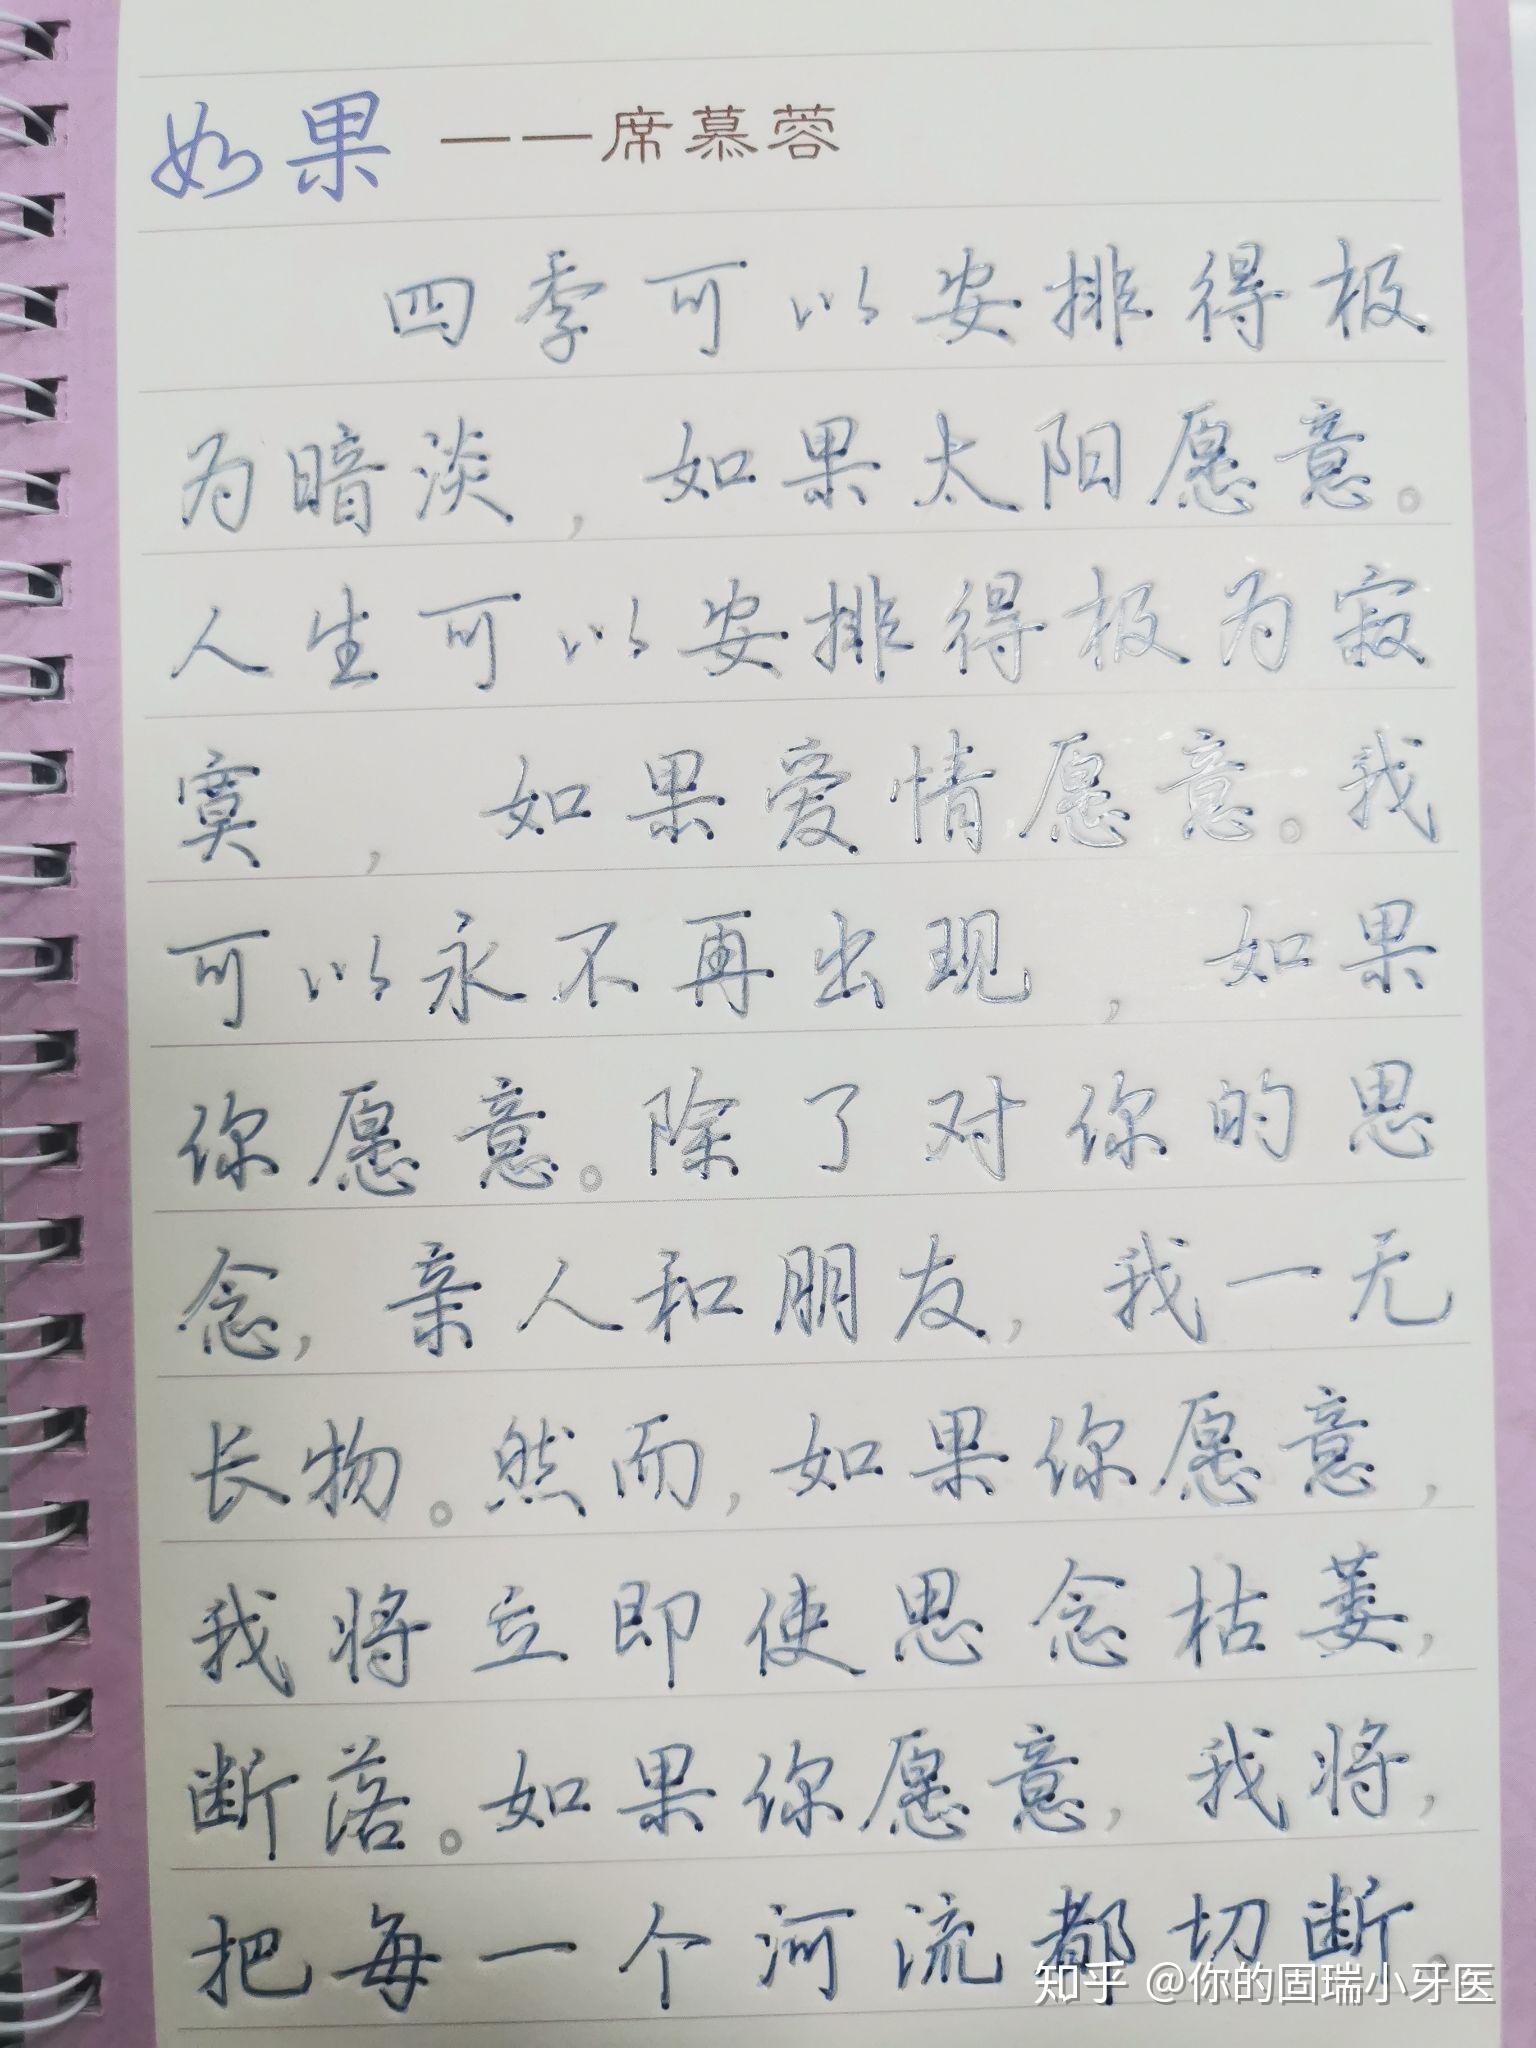 如果 ——席慕蓉
四季可以安排得极
为暗淡，如果太阳愿意。
人生可以安排得极为寂
寞，如果爱情愿意。我
可以永不再出现，如果
你愿意。除了对你的思
念，亲人和朋友，我一无
长物。然而，如果你愿意，
我将立即使思念枯萎，
断落。如果你愿意，我将，
把每一个河流都切断。
知乎 @你的固瑞小牙医